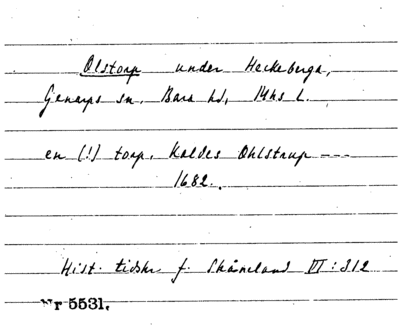 Olstorp under Heckeberga,
Genarps sn. Bara hd, Mhs L.
en (!) torp. kaldes Ohlstrup ---
1682.
Hist. tidskr. f. Skåneland VI : 312
Nr 5531.